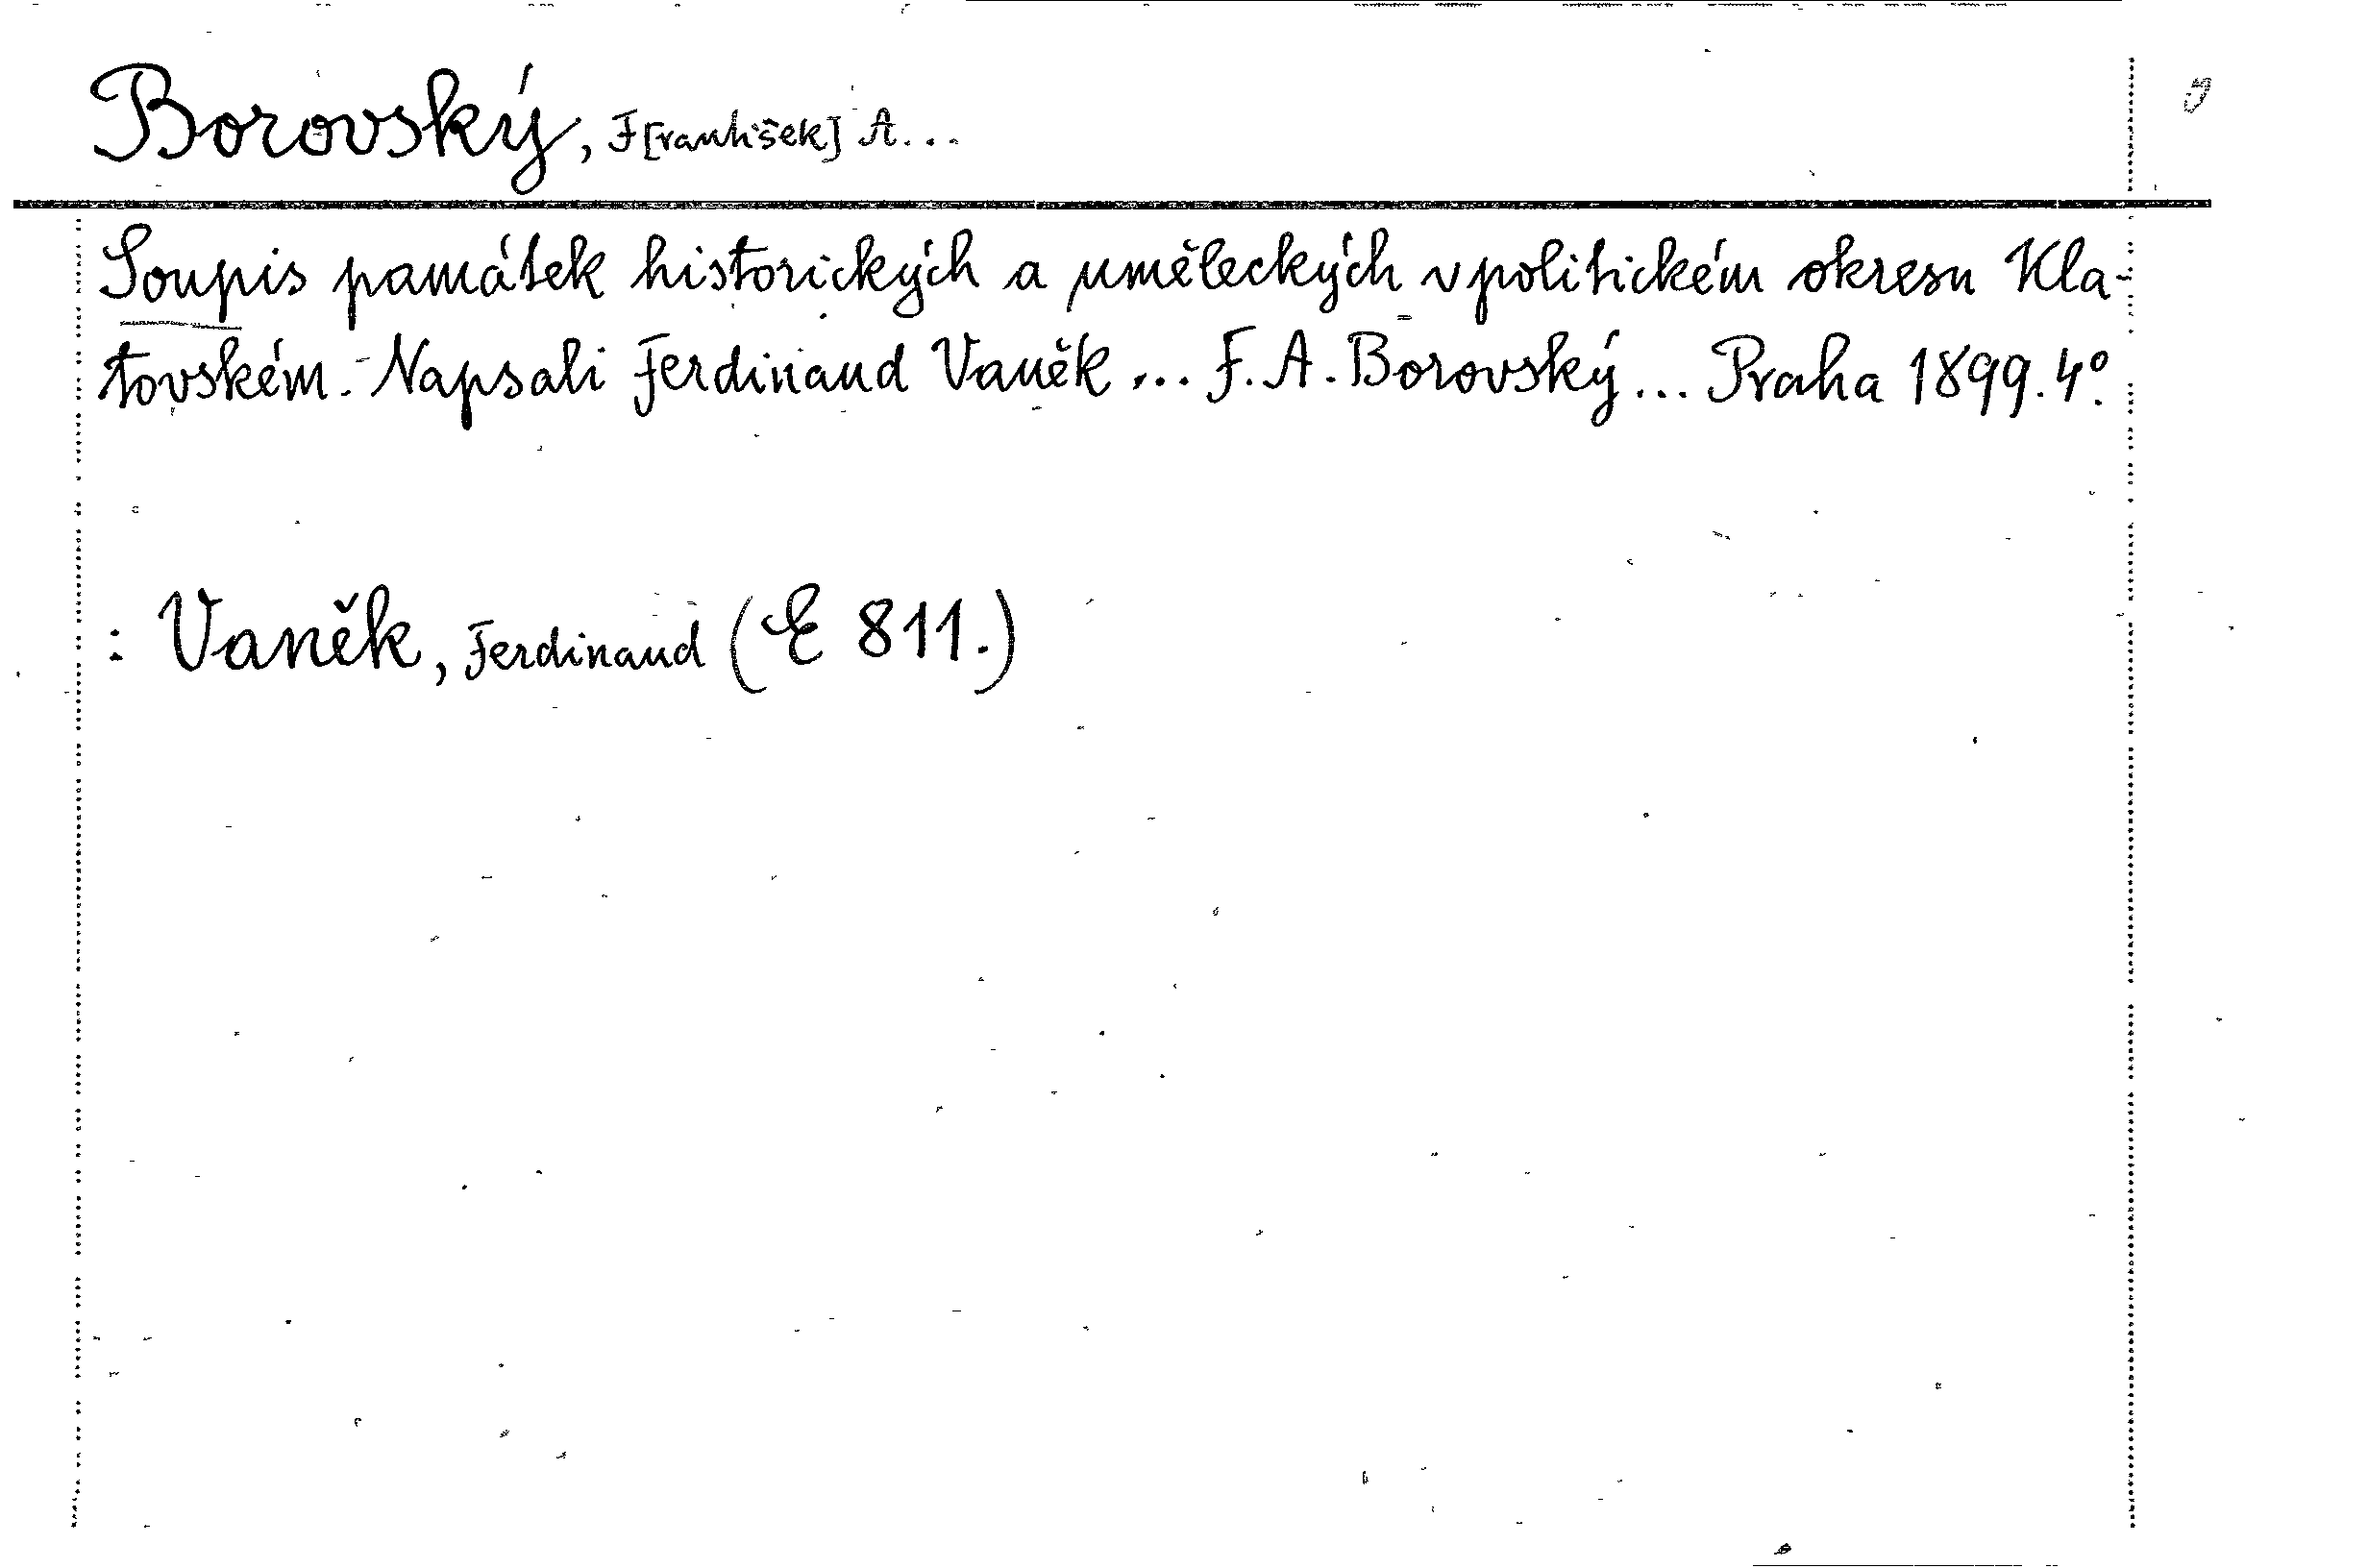 Borovský, F[rantišek] A...
Soupis památek historických a uměleckých v politickém okresu Kla-
tovském. Napsali Ferdinand Vaněk ... F. A. Borovský... Praha 1899. 4º.
: Vaněk, Ferdinand (E 811.)